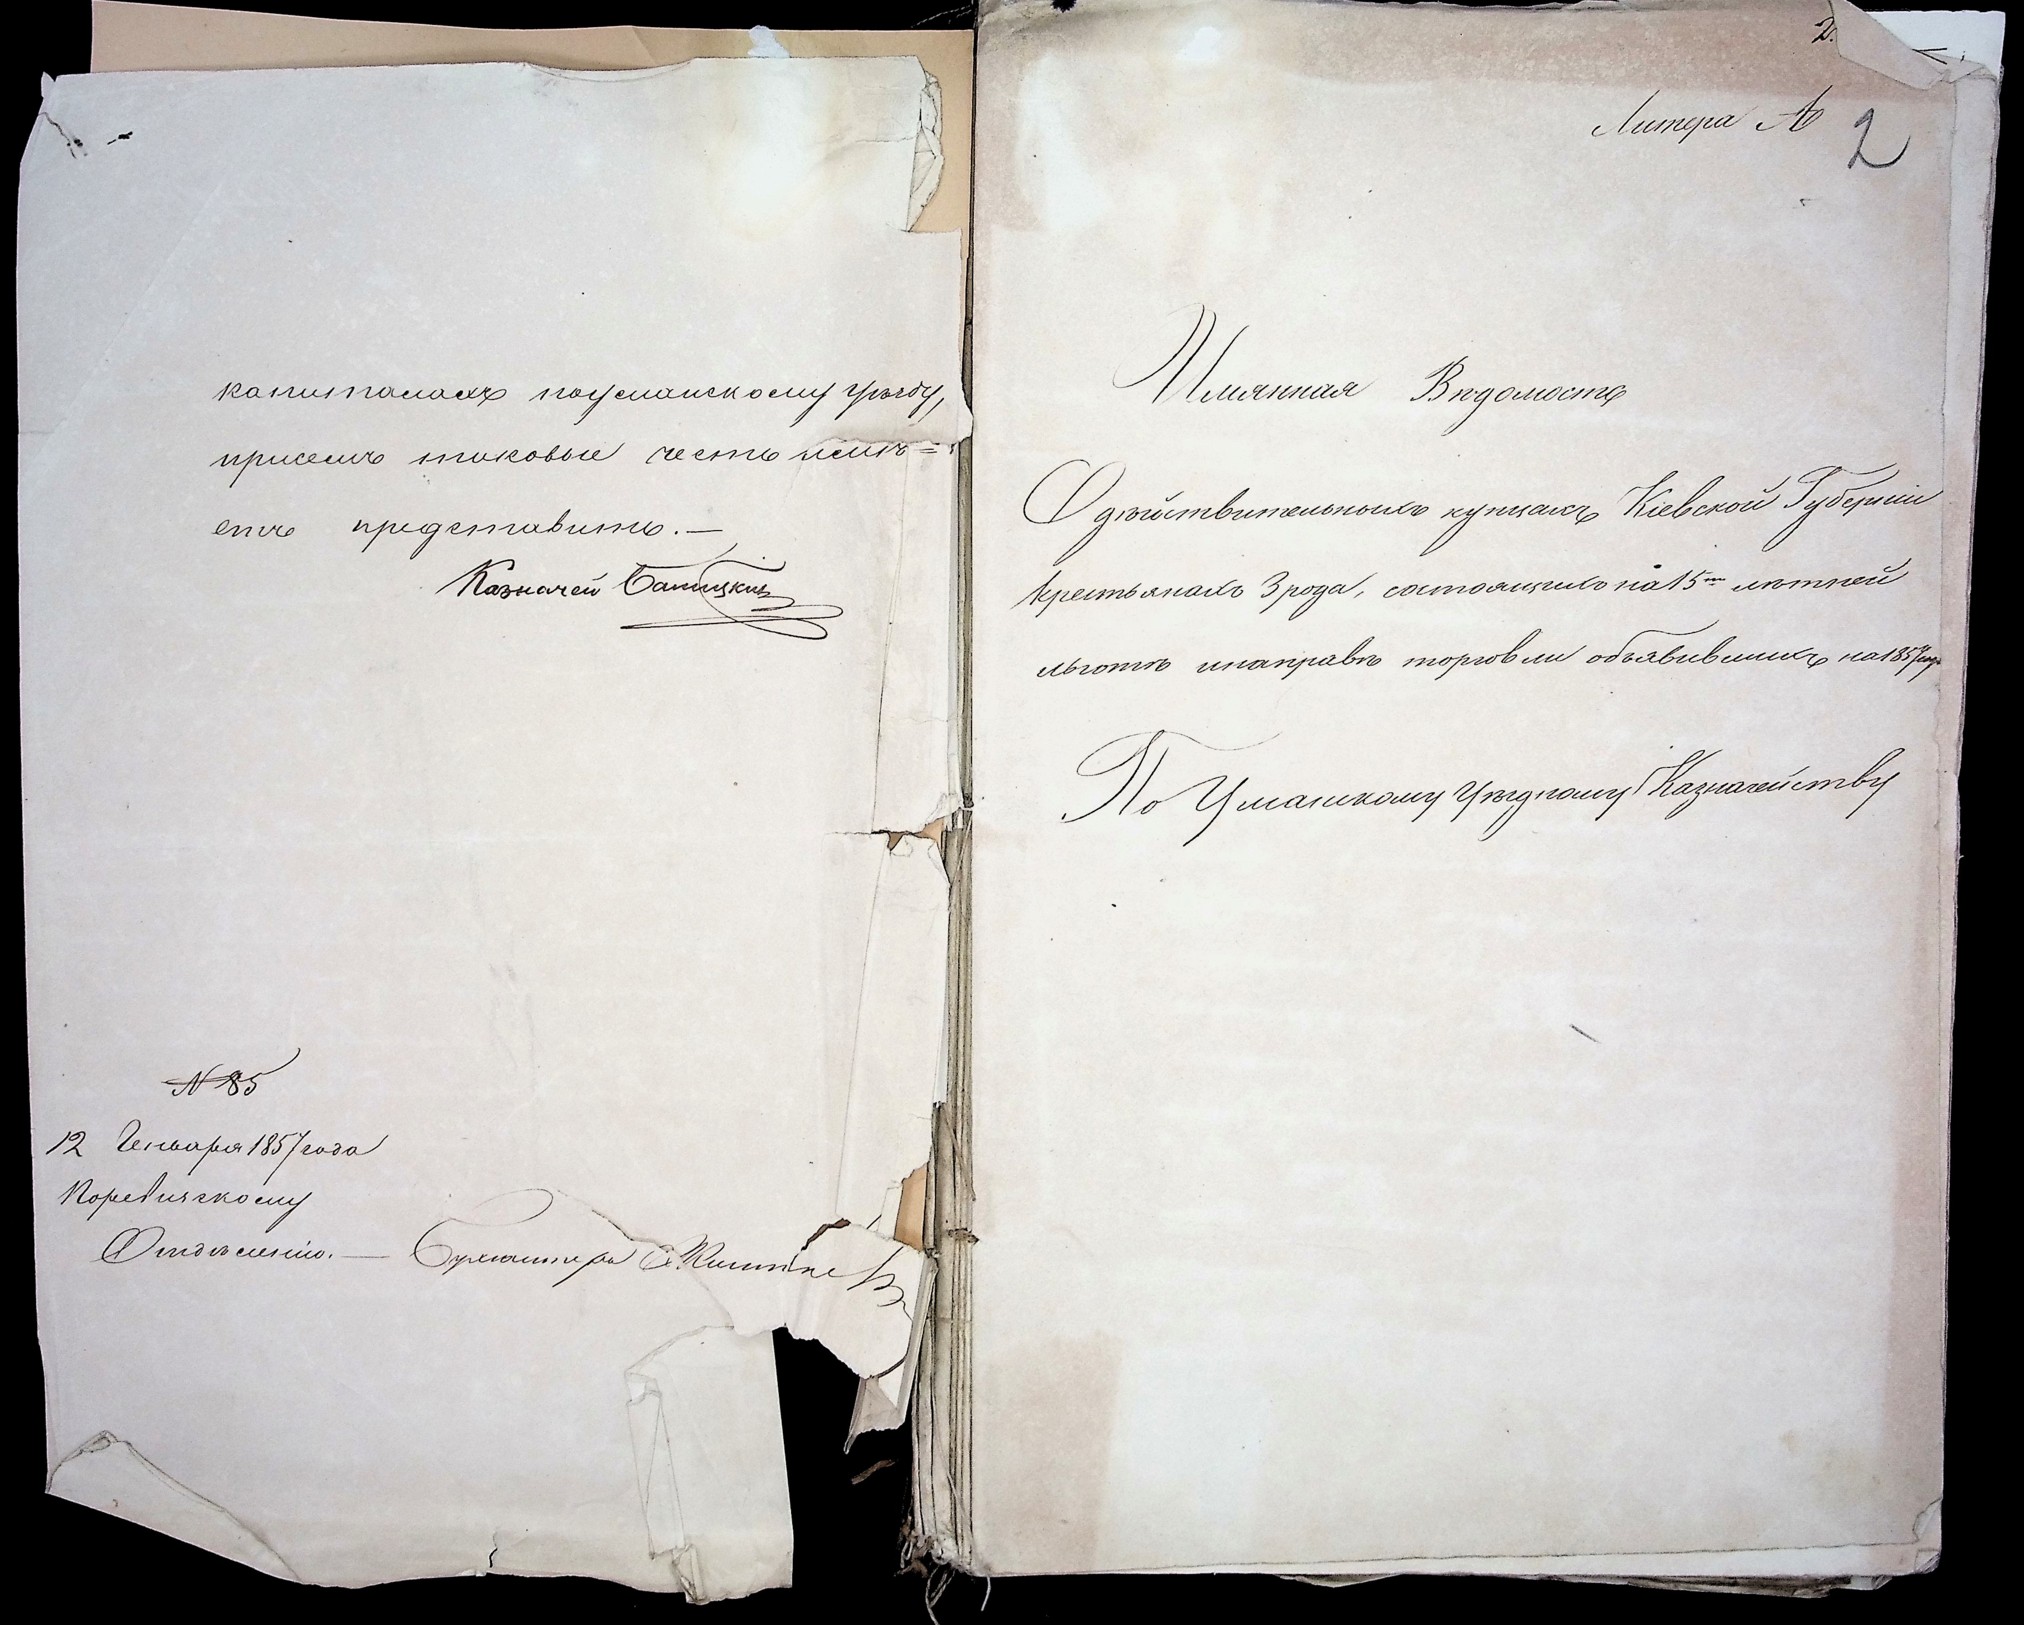 капиталахъ поуманскому уѣзду,
присемъ таковые честь имѣ=
етъ представить. —
Казначей
№ 85
12 Генваря 1857 года
Поревизскому
Отдѣленію. — Бухгалтеръ
2.
Литера А
2
Имянная Вѣдомость
О дѣйствительныхъ купцахъ Кіевской Губерніи
крестьянахъ 3 рода, состоящихъ на 15ти лѣтней
льготѣ инаправѣ торговли объявившихъ на 1857 годъ
По Уманскому Уѣздному Казначейству